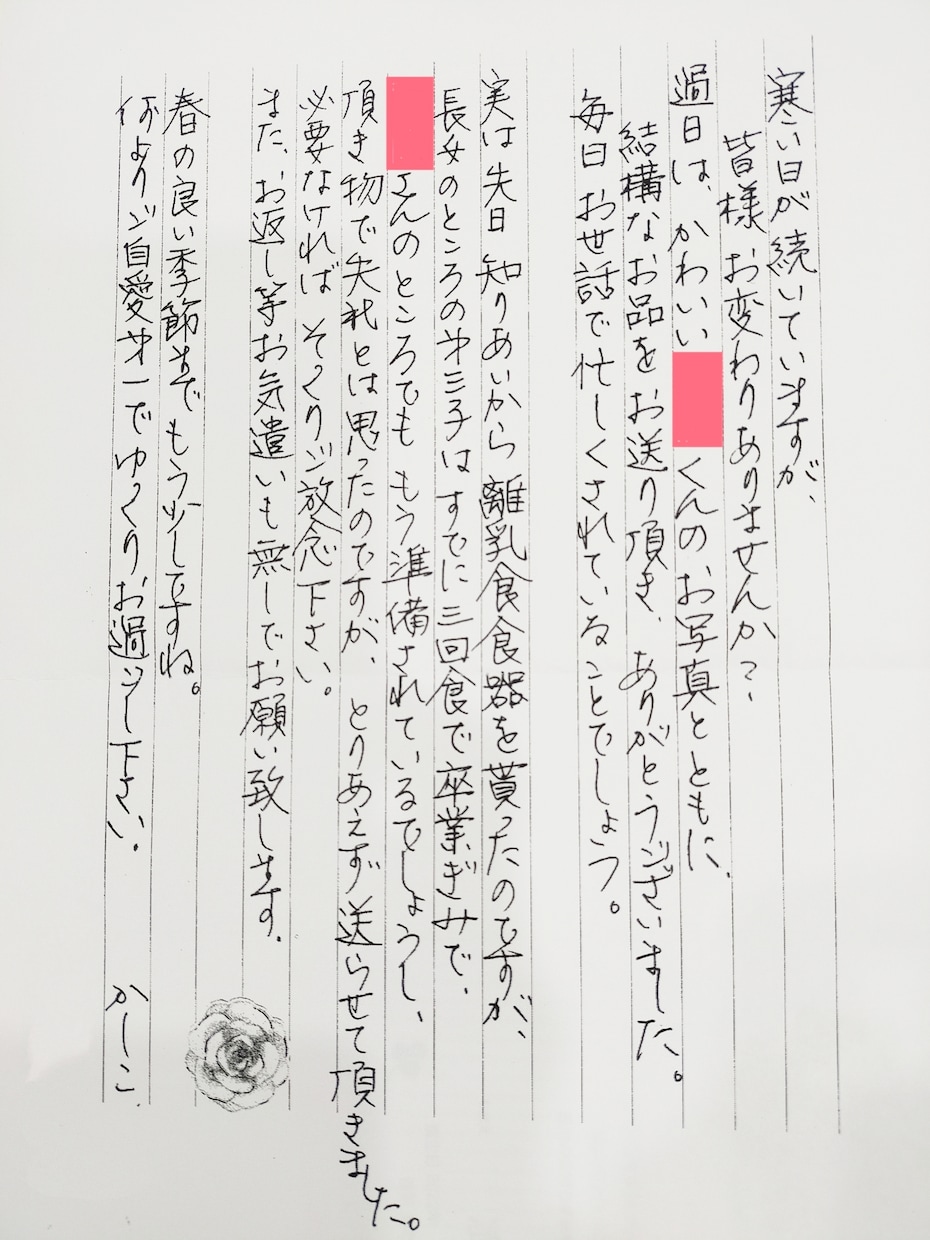 寒い日が続いていますが、
皆様お変わりありませんか?
過日は、かわいい
くんのお写真とともに、
結構なお品をお送り頂き、ありがとうございました。
毎日お世話で忙しくされていることでしょう。
実は先日知りあいから離乳食食器を貰ったのですが、
長女のところの第三子はすでに三回食で卒業ぎみで、
さんのところでももう準備されているでしょうし、
頂き物で失礼とは思ったのですが、とりあえず送らせて頂きました。
必要なければそっくりご放念下さい。
また、お返し等お気遣いも無しでお願い致します。
春の良い季節までもう少しですね。
何よりご自愛第一でゆっくりお過ごし下さい。
かしこ